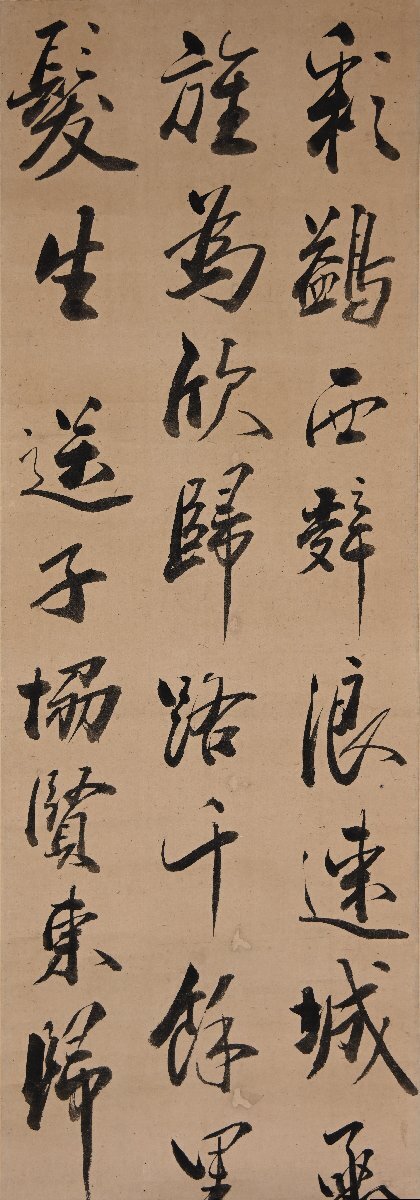 彩鷁西辭浪速城
為欣歸路千餘里
髮生 送子協賢東歸